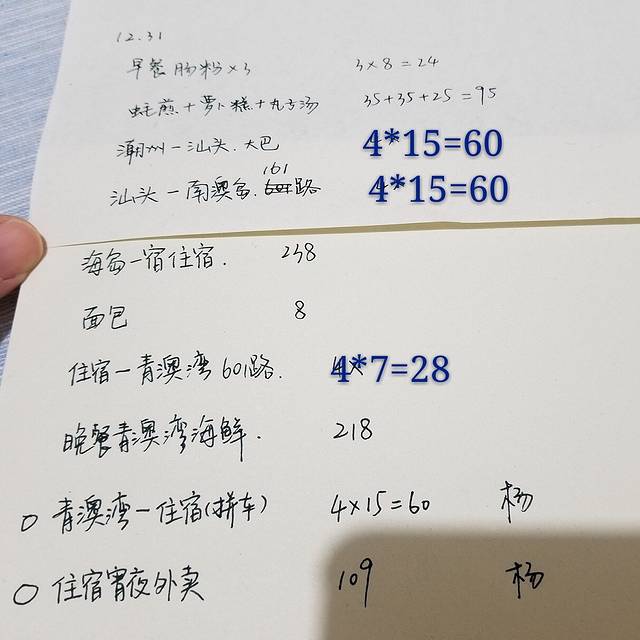 12.31
早餐 肠粉×3 3×8=24
蚝煎+萝卜糕+丸子汤 35+35+25=95
潮州-汕头.大巴 4*15=60
161
汕头-南澳岛. 路 4*15=60
海岛一宿住宿. 238
面包 8
住宿-青澳湾 601路. 4*7=28
晚餐青澳湾海鲜. 218
○ 青澳湾-住宿(拼车) 4×15=60 杨
○ 住宿宵夜外卖 109 杨